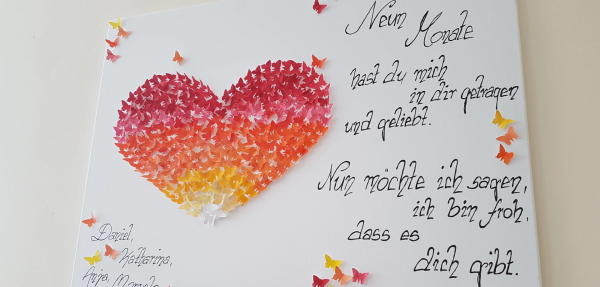 Neun
Monate
hast du mich
in dir getragen
und geliebt.
Nun möchte ich sagen,
ich bin froh,
dass es
dich gibt.
Daniel,
Katharina,
Anja,